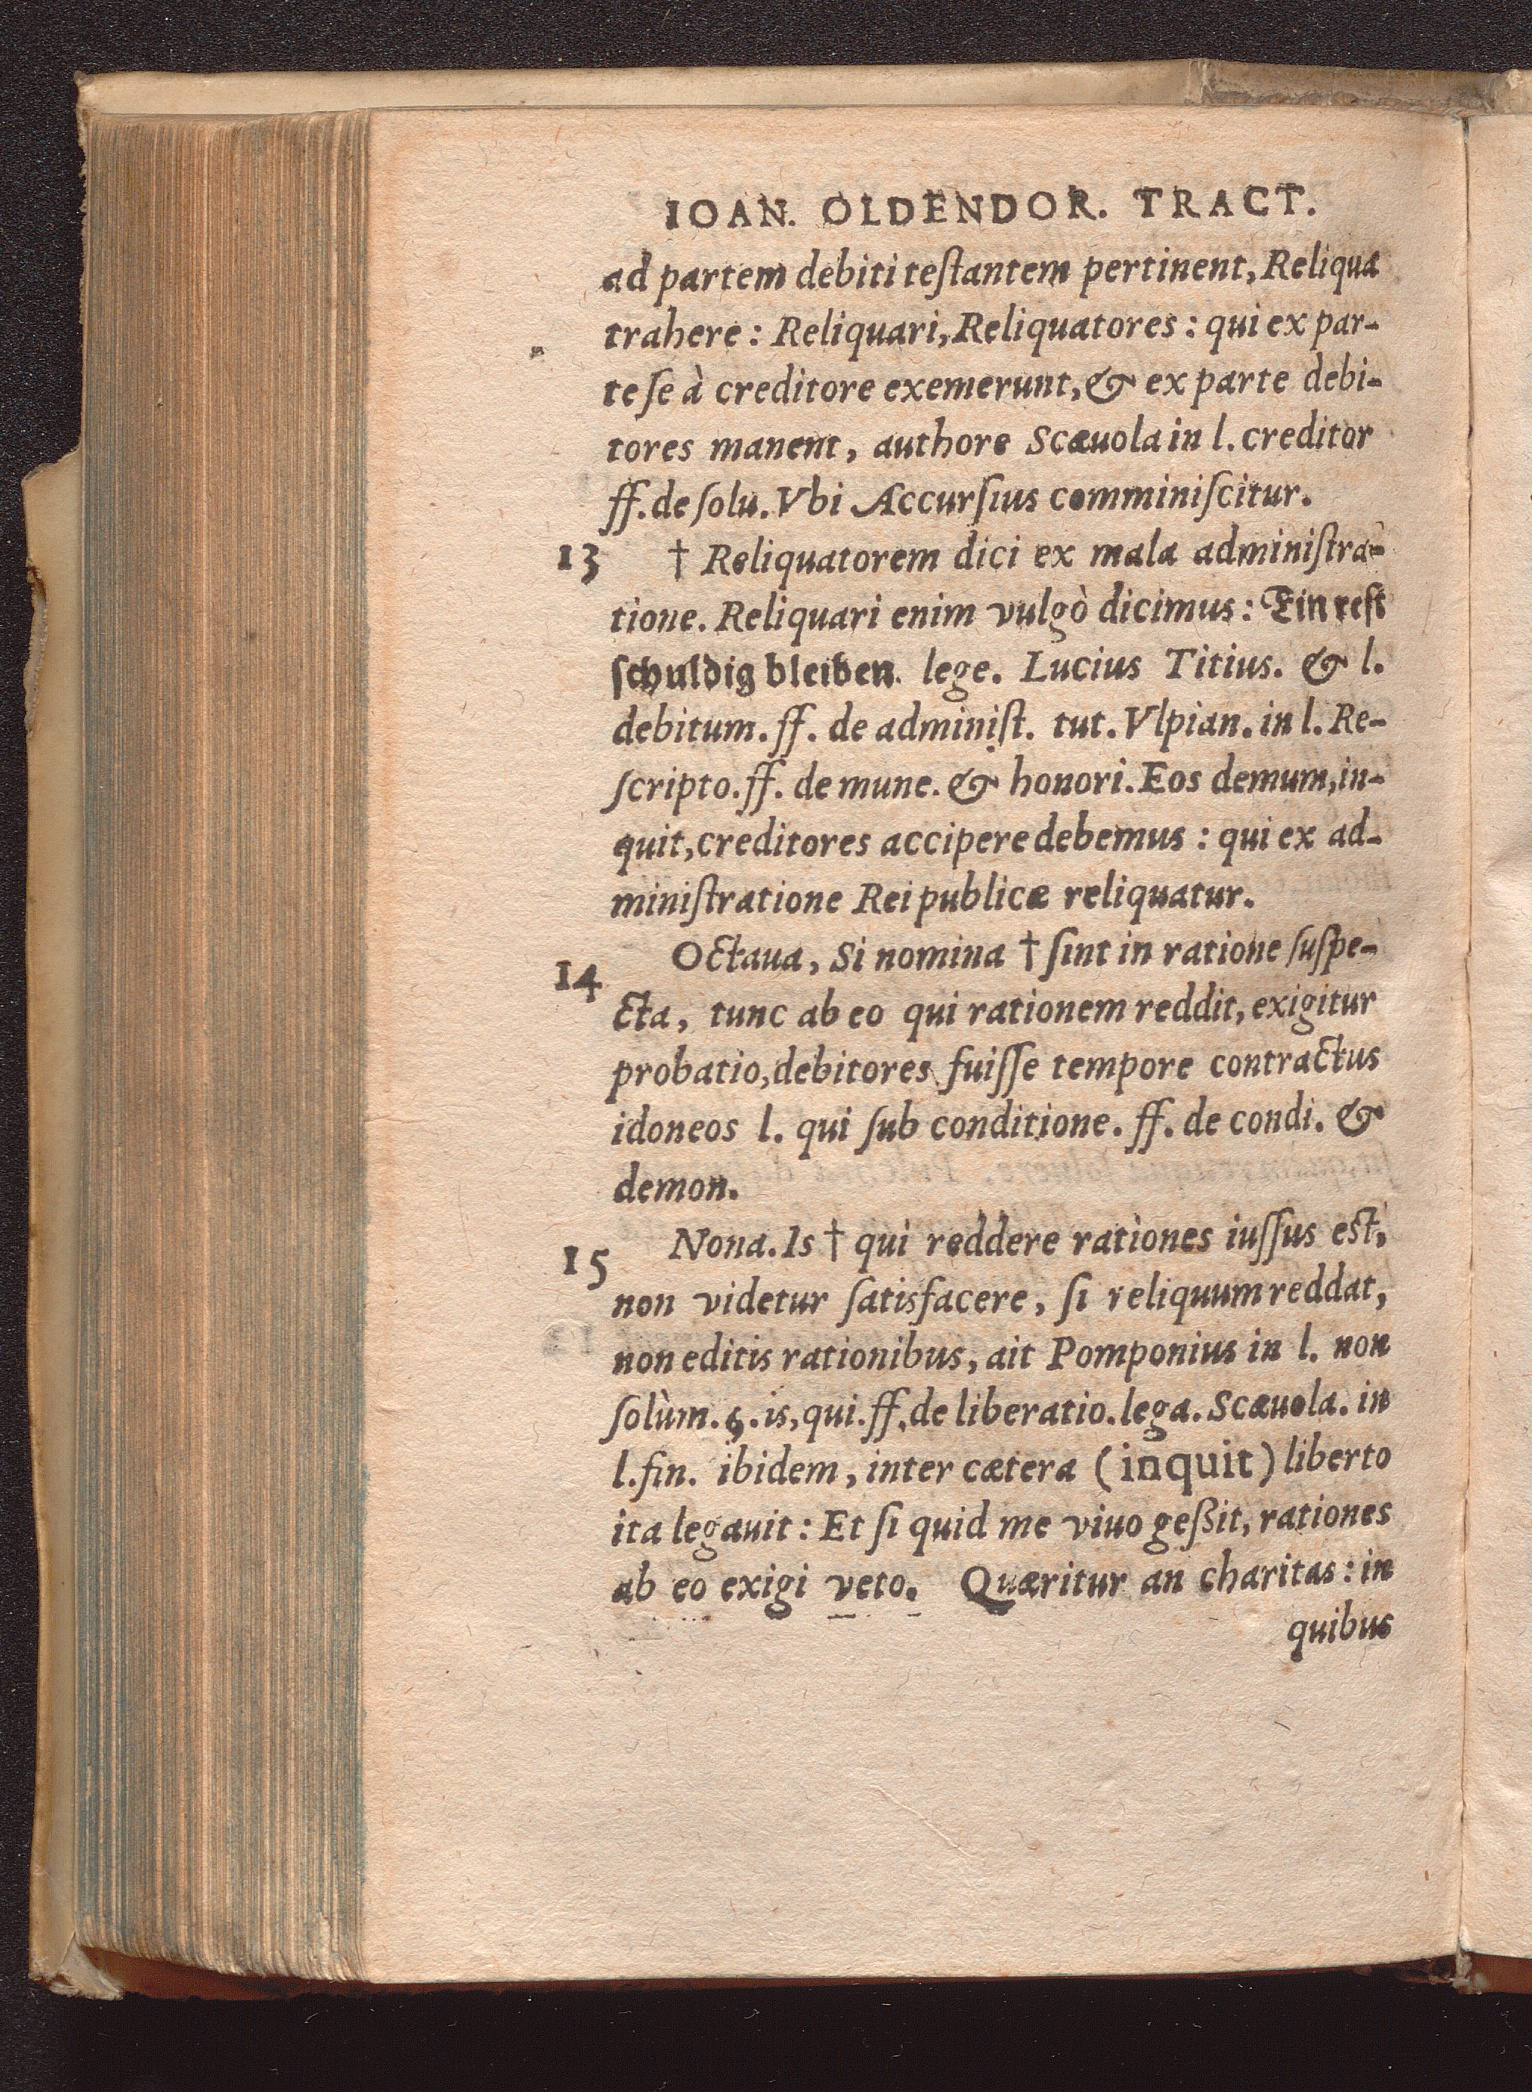 IOAN. OLDENDOR. TRACT.
ad partem debiti teſtantem pertinent, Reliqua
trahere: Reliquari, Reliquatores: qui ex par-
te ſe à creditore exemerunt, & ex parte debi-
tores manent, authore Scæuola in l. creditor
ff. de ſolu. Vbi Accurſius comminiſcitur.
13 † Reliquatorem dici ex mala adminiſtra-
tione. Reliquari enim vulgò dicimus: Ein reſt
ſchuldig bleiben. lege. Lucius Titius. & l.
debitum. ff. de adminiſt. tut. Vlpian. in l. Re-
ſcripto. ff. de mune. & honori. Eos demum, in-
quit, creditores accipere debemus: qui ex ad-
miniſtratione Rei publicæ reliquatur.
Octaua, Si nomina † ſint in ratione ſuſpe-
14 cta, tunc ab eo qui rationem reddit, exigitur
probatio, debitores fuiſſe tempore contractus
idoneos l. qui ſub conditione. ff. de condi. &
demon.
15 Nona. Is † qui reddere rationes iuſſus eſt,
non videtur ſatisfacere, ſi reliquum reddat,
non editis rationibus, ait Pomponius in l. non
ſolùm. §. is, qui. ff. de liberatio. lega. Scæuola. in
l. fin. ibidem, inter cætera (inquit) liberto
ita legauit: Et ſi quid me viuo geßit, rationes
ab eo exigi veto. Quæritur an charitas: in
quibus